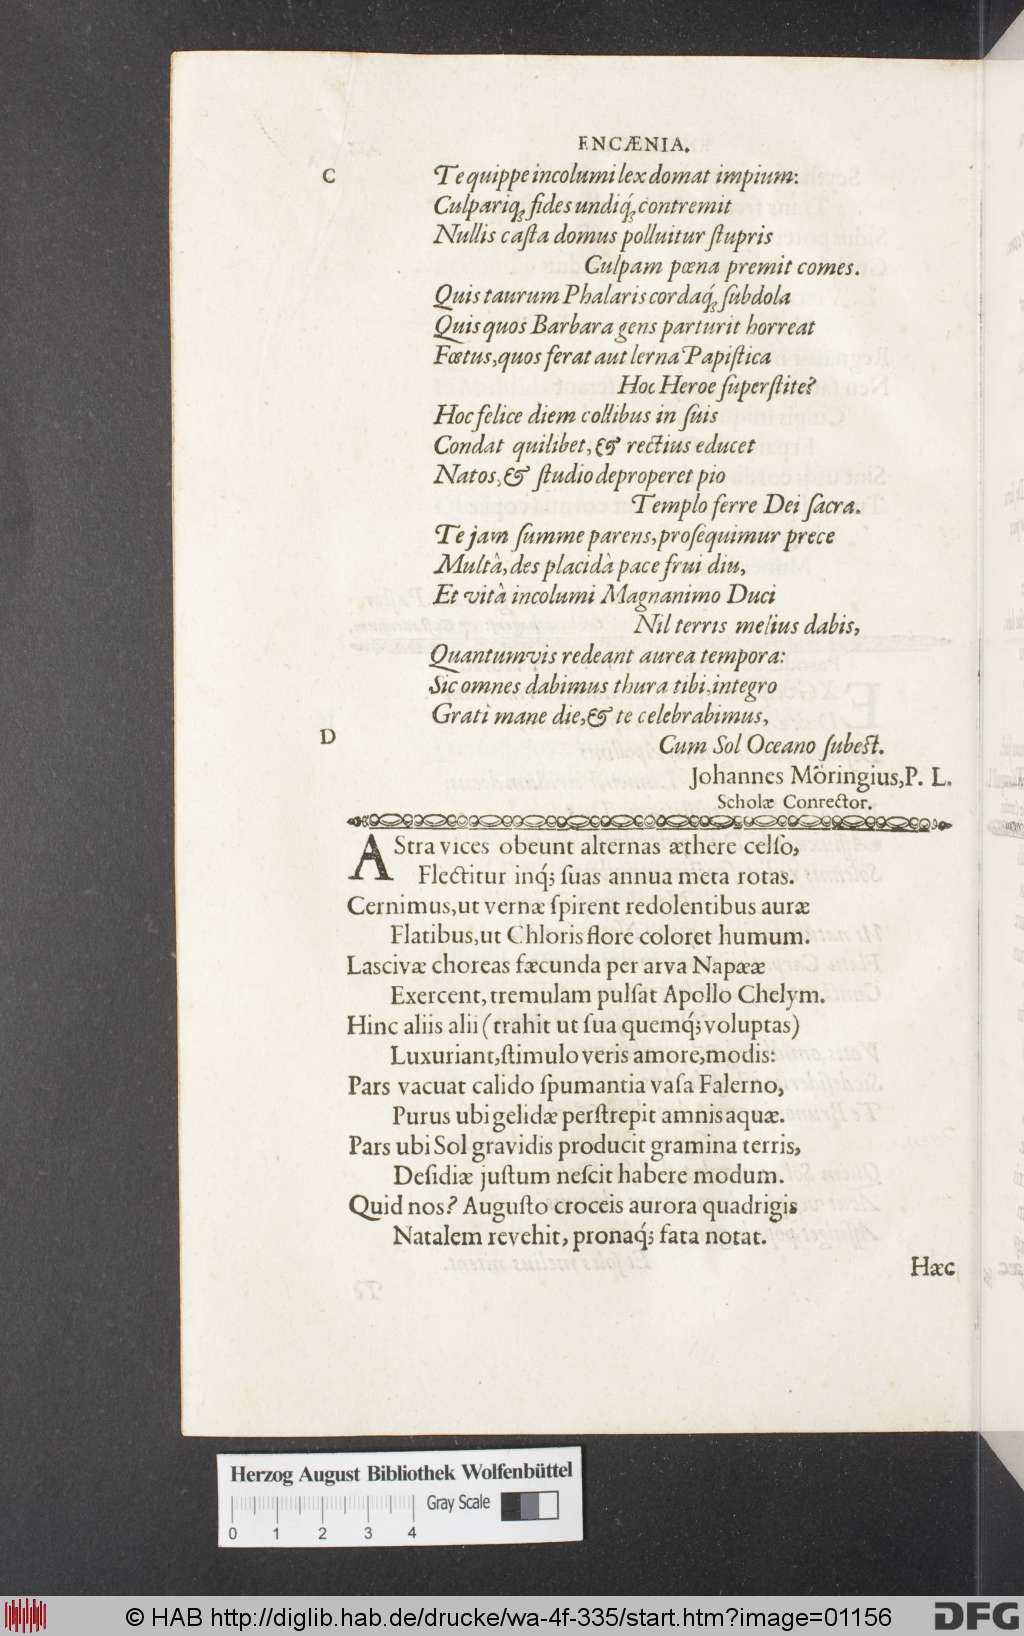 ENCÆNIA.
C
Te quippe incolumi lex domat impium:
Culpariq́ꝫ fides undiq́ꝫ contremit
Nullis caſta domus polluitur ſtupris
Culpam pœna premit comes.
Quis taurum Phalaris cordaq́ꝫ ſubdola
Quis quos Barbara gens parturit horreat
Fœtus, quos ferat aut lerna Papiſtica
Hoc Heroe ſuperſtite?
Hoc felice diem collibus in ſuis
Condat quilibet, & rectius educet
Natos, & ſtudio deproperet pio
Templo ferre Dei ſacra.
Te jam ſumme parens, proſequimur prece
Multà, des placidà pace frui diu,
Et vità incolumi Magnanimo Duci
Nil terris melius dabis,
Quantumvis redeant aurea tempora:
Sic omnes dabimus thura tibi, integro
Grati mane die, & te celebrabimus,
D
Cum Sol Oceano ſubeſt.
Johannes Möringius, P. L.
Scholæ Conrector.
AStra vices obeunt alternas æthere celſo,
Flectitur inq́ꝫ ſuas annua meta rotas.
Cernimus, ut vernæ ſpirent redolentibus auræ
Flatibus, ut Chloris flore coloret humum.
Lascivæ choreas fæcunda per arva Napææ
Exercent, tremulam pulſat Apollo Chelym.
Hinc aliis alii (trahit ut ſua quemq́ꝫ voluptas)
Luxuriant, ſtimulo veris amore, modis:
Pars vacuat calido ſpumantia vaſa Falerno,
Purus ubi gelidæ perſtrepit amnis aquæ.
Pars ubi Sol gravidis producit gramina terris,
Deſidiæ juſtum neſcit habere modum.
Quid nos? Auguſto croceis aurora quadrigis
Natalem revehit, pronaq́ꝫ fata notat.
Hæc
Herzog August Bibliothek Wolfenbüttel
Gray Scale
0 1 2 3 4
© HAB http://diglib.hab.de/drucke/wa-4f-335/start.htm?image=01156
DFG